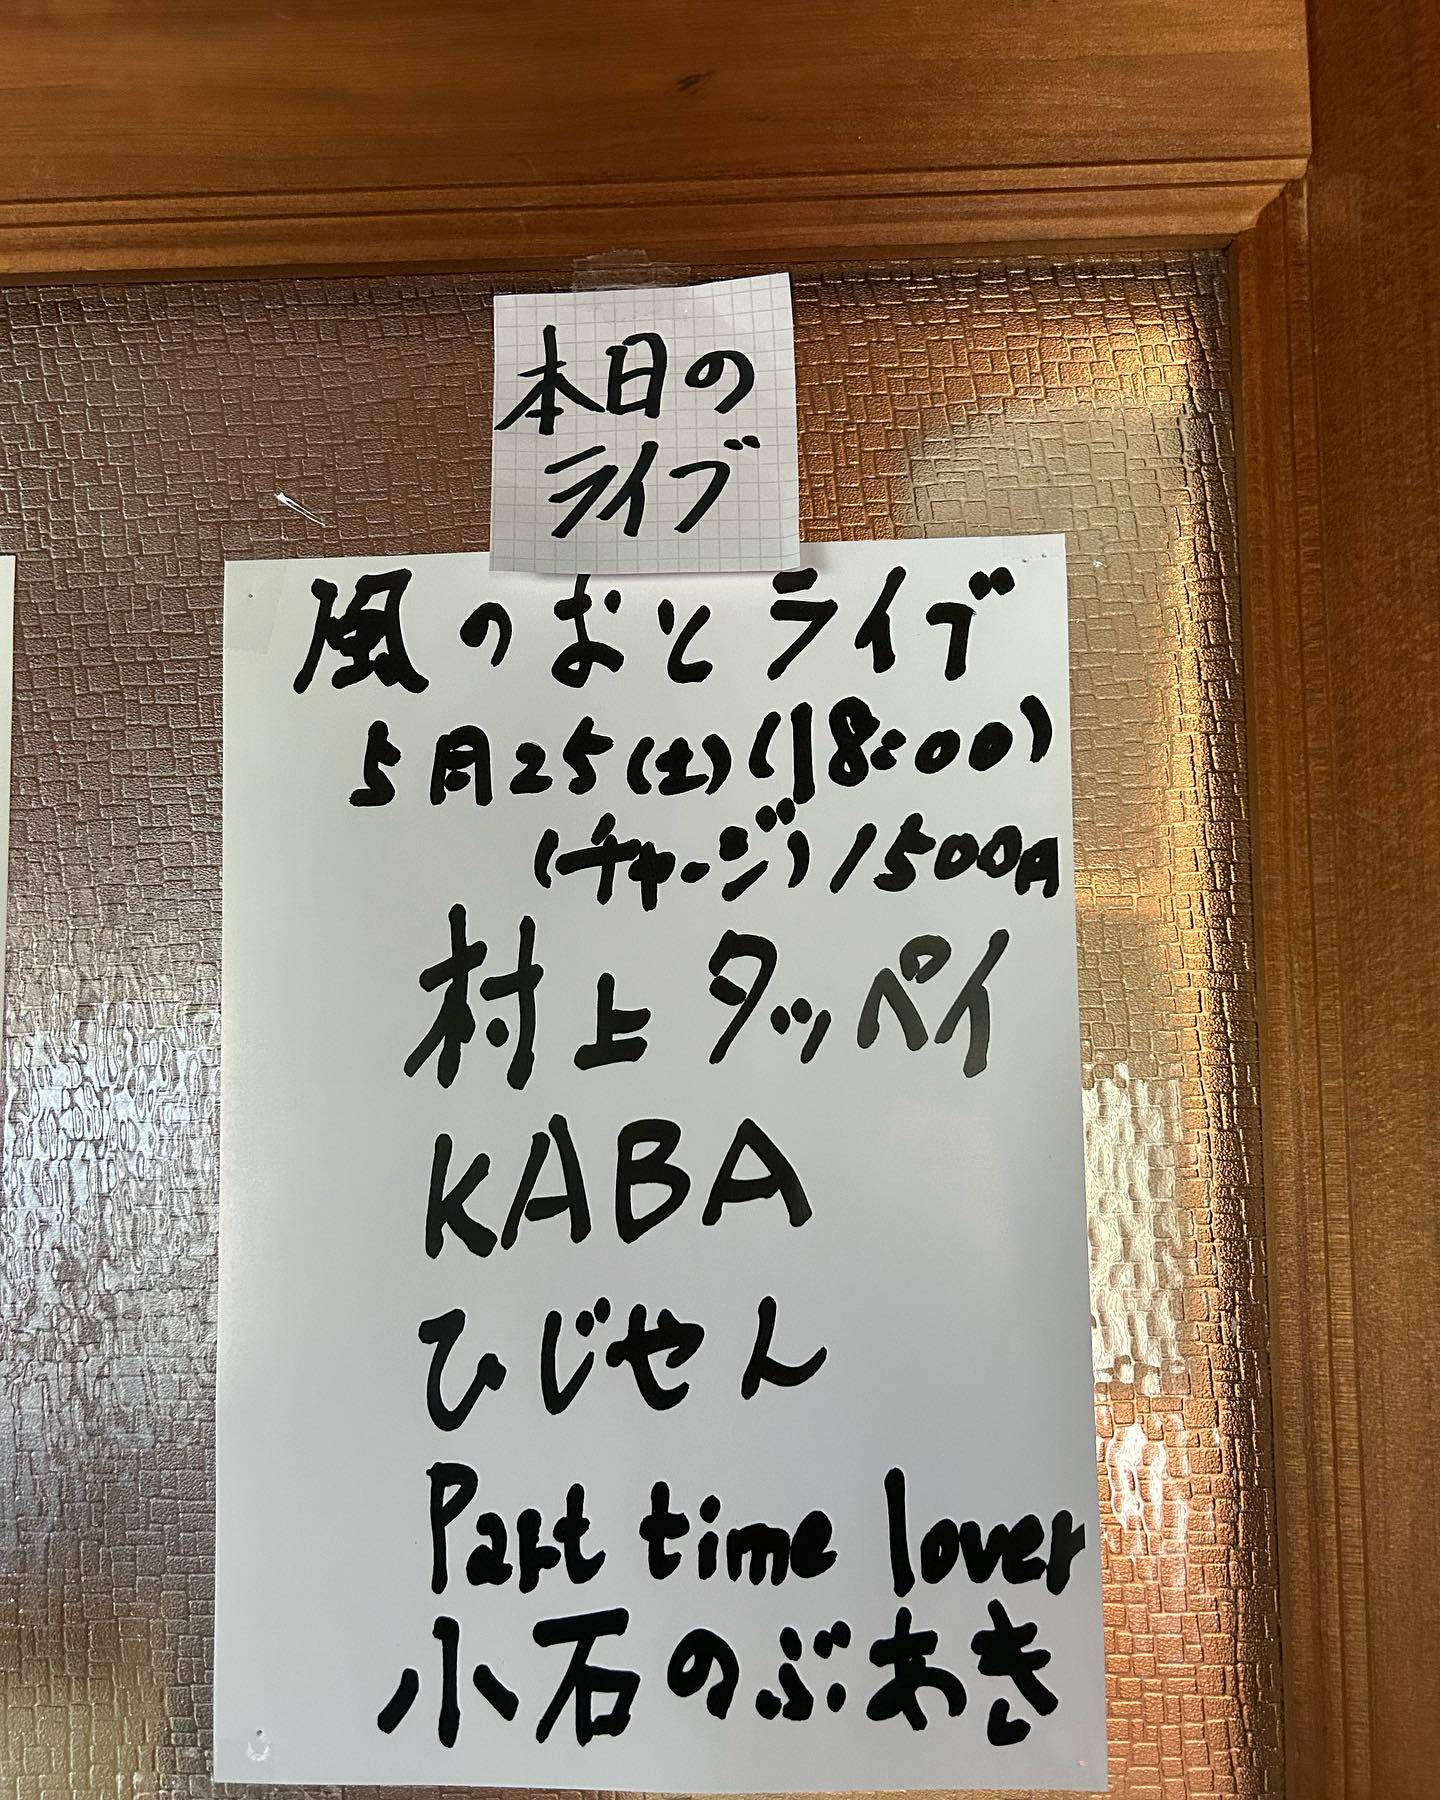 本日の
ライブ
風のおとライブ
5月25(土)(18:00)
(チャージ)1500円
村上タッペイ
KABA
ひじせん
Part time lover
小石のぶあき